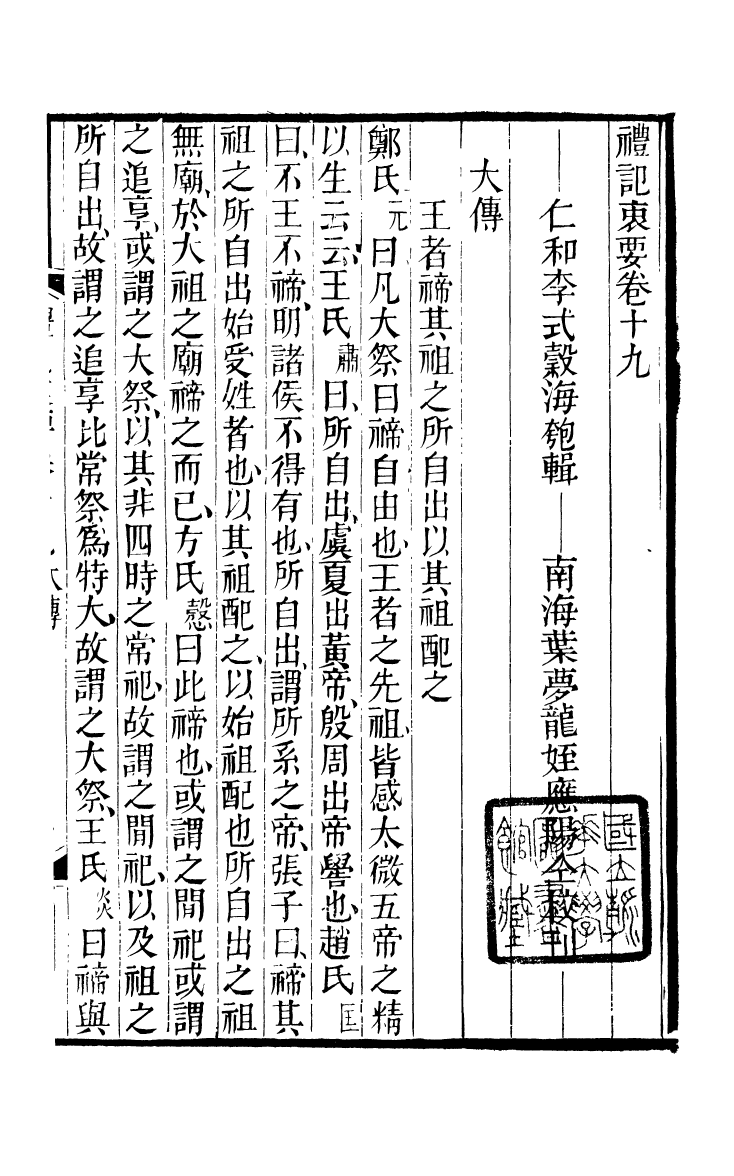 禮記衷要卷十九
仁和李式穀海匏輯　南海葉夢龍姪應陽仝校刊
大傳
王者禘其祖之所自出以其祖配之
鄭氏元曰凡大祭曰禘自由也、王者之先祖、皆感太微五帝之精
以生云云、王氏肅曰、所自出、虞夏出黃帝、殷周出帝嚳也、趙氏匡
曰、不王不禘、明諸侯不得有也、所自出、謂所系之帝、張子曰、禘其
祖之所自出始受姓者也、以其祖配之、以始祖配也所自出之祖
無廟、於大祖之廟禘之而已、方氏慤曰此禘也、或謂之間祀或謂
之追享、或謂之大祭、以其非四時之常祀、故謂之間祀、以及祖之
所自出、故謂之追享比常祭爲特大、故謂之大祭、王氏炎曰禘與
大傳
國立
大學
館藏